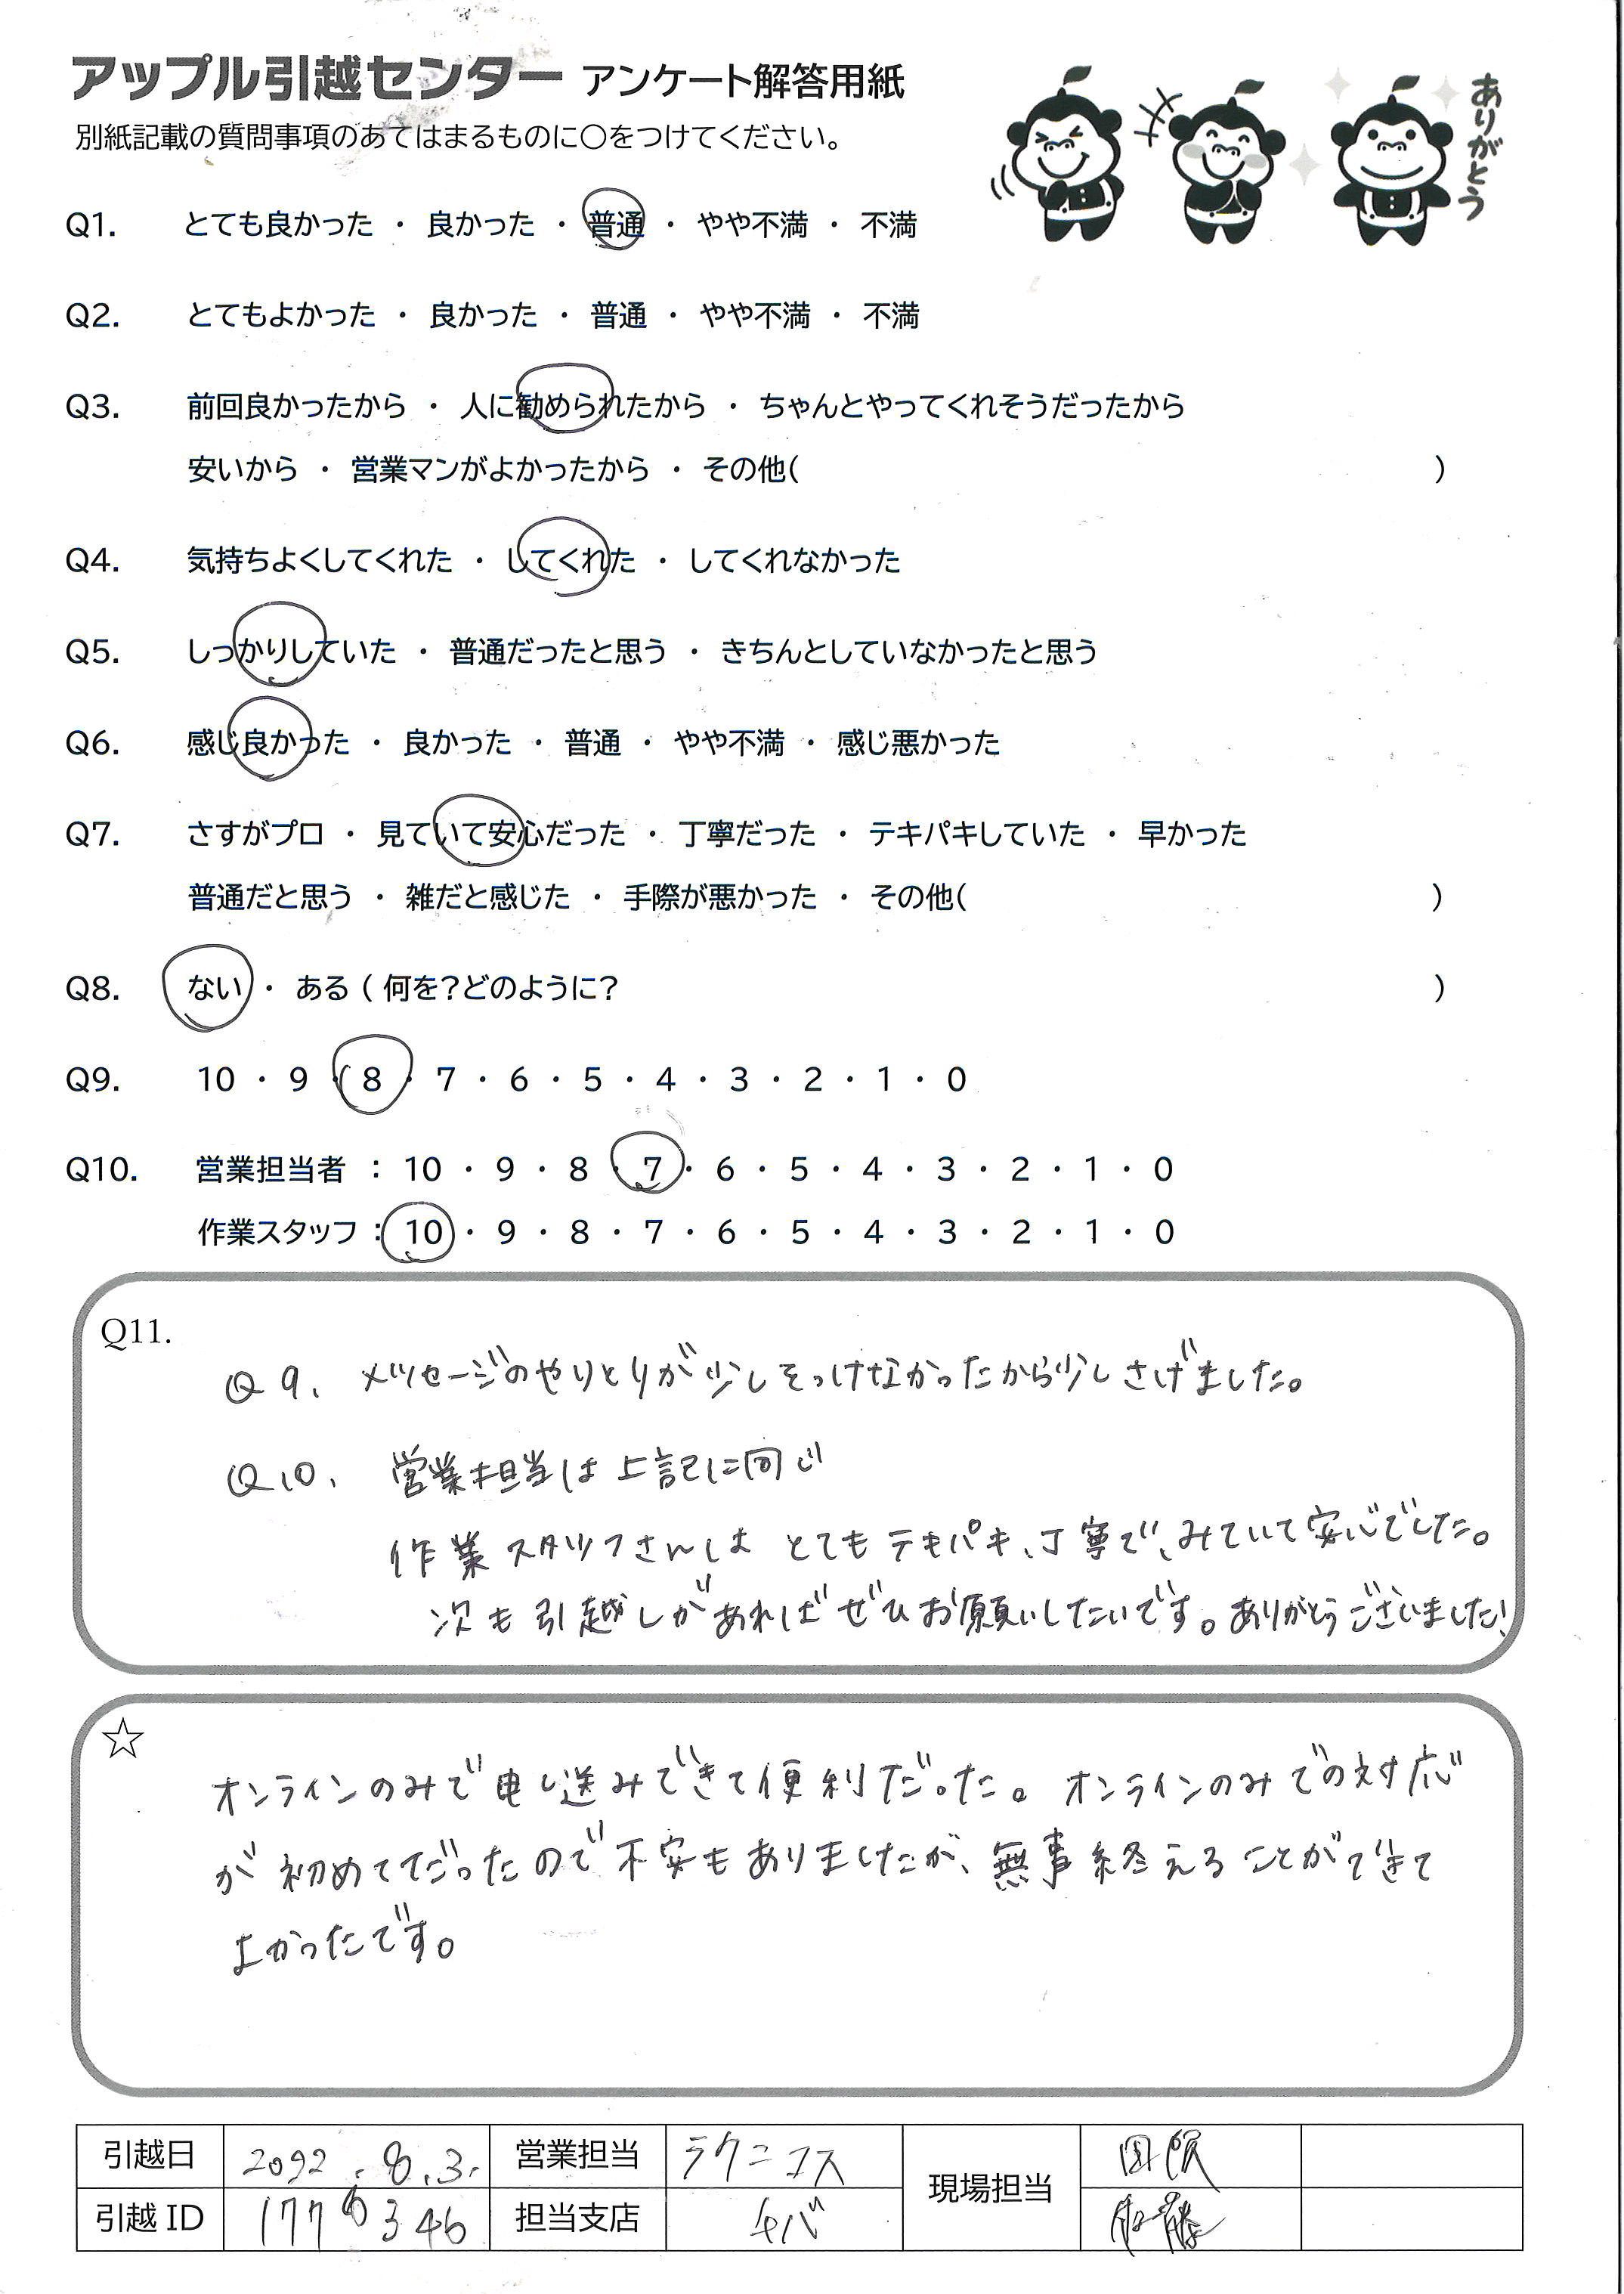 アップル引越センター アンケート解答用紙
別紙記載の質問事項のあてはまるものに〇をつけてください。
ありがとう
Q1. とても良かった ・ 良かった ・ 普通 ・ やや不満 ・ 不満
Q2. とてもよかった ・ 良かった ・ 普通 ・ やや不満 ・ 不満
Q3. 前回良かったから ・ 人に勧められたから ・ ちゃんとやってくれそうだったから
安いから ・ 営業マンがよかったから ・ その他( )
Q4. 気持ちよくしてくれた ・ してくれた ・ してくれなかった
Q5. しっかりしていた ・ 普通だったと思う ・ きちんとしていなかったと思う
Q6. 感じ良かった ・ 良かった ・ 普通 ・ やや不満 ・ 感じ悪かった
Q7. さすがプロ ・ 見ていて安心だった ・ 丁寧だった ・ テキパキしていた ・ 早かった
普通だと思う ・ 雑だと感じた ・ 手際が悪かった ・ その他( )
Q8. ない ・ ある ( 何を?どのように? )
Q9. 10 ・ 9 ・ 8 ・ 7 ・ 6 ・ 5 ・ 4 ・ 3 ・ 2 ・ 1 ・ 0
Q10. 営業担当者 : 10 ・ 9 ・ 8 ・ 7 ・ 6 ・ 5 ・ 4 ・ 3 ・ 2 ・ 1 ・ 0
作業スタッフ : 10 ・ 9 ・ 8 ・ 7 ・ 6 ・ 5 ・ 4 ・ 3 ・ 2 ・ 1 ・ 0
Q11.
Q9. メッセージのやりとりが少しそっけなかったから少しさげました。
Q10. 営業担当は上記に同じ
作業スタッフさんは とてもテキパキ、丁寧で、みていて安心でした。
次も引越しがあればぜひお願いしたいです。ありがとうございました!
☆
オンラインのみで申し込みできて便利だった。オンラインのみでの対応
が初めてだったので不安もありましたが、無事終えることができて
よかったです。
引越日 営業担当 ラクニコス 現場担当
引越 ID 担当支店 チバ 佐藤